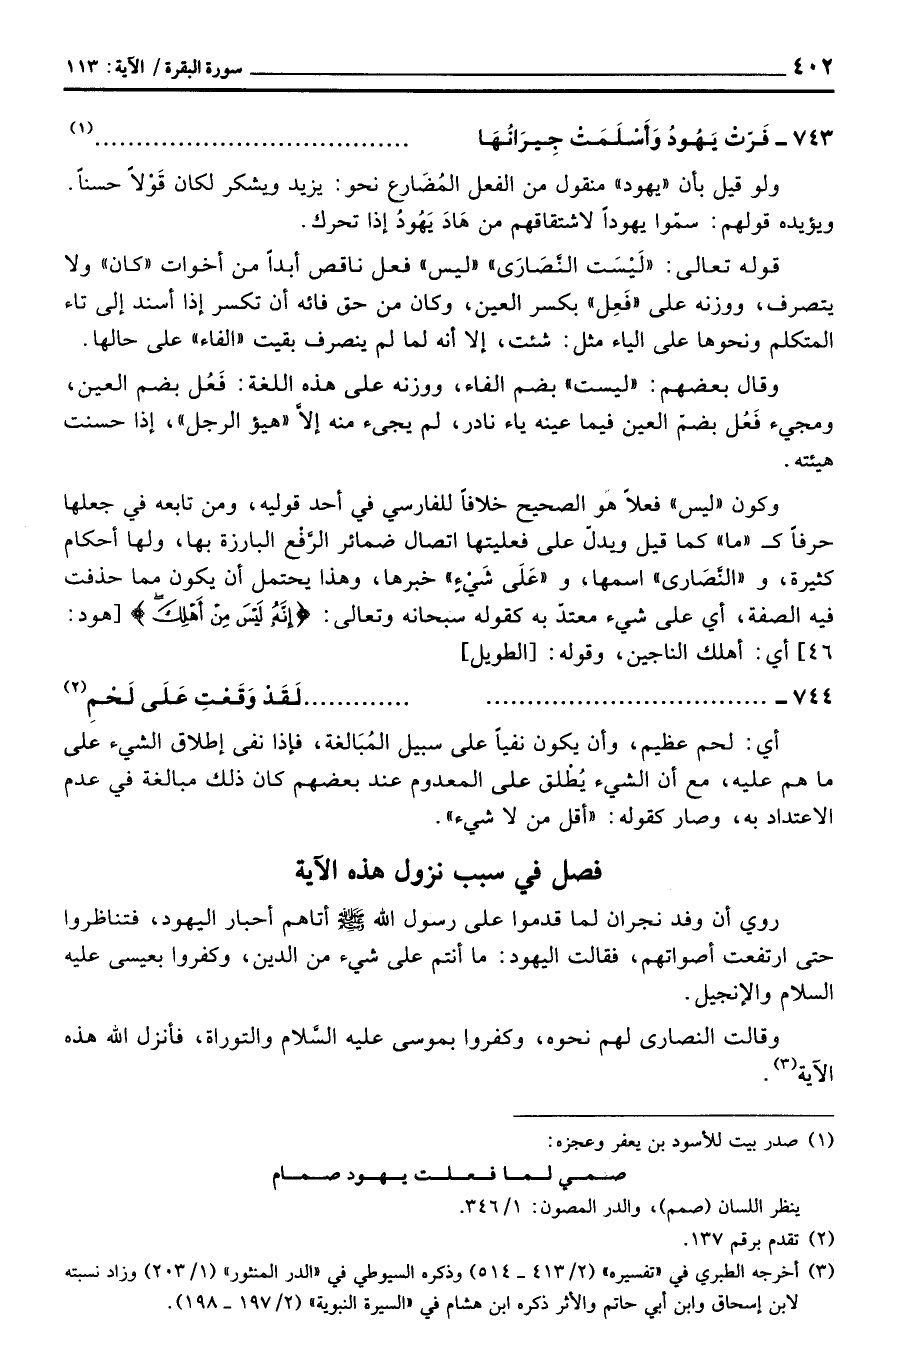 ٤٠٢ ــــــــــــــــــــ سورة البقرة / الآية: ١١٣
٧٤٣ ـ فَرَّتْ يَهُودُ وَأَسْلَمَتْ جِيرَانُهَا ......................................(١)
ولو قيل بأن «يهود» منقول من الفعل المُضَارع نحو: يزيد ويشكر لكان قَوْلاً حسناً.
ويؤيده قولهم: سمّوا يهوداً لاشتقاقهم من هَادَ يَهُودُ إذا تحرك.
قوله تعالى: «لَيْسَت النَّصَارَى» «ليس» فعل ناقص أبداً من أخوات «كان» ولا
يتصرف، ووزنه على «فَعِل» بكسر العين، وكان من حق فائه أن تكسر إذا أسند إلى تاء
المتكلم ونحوها على الياء مثل: شئت، إلا أنه لما لم ينصرف بقيت «الفاء» على حالها.
وقال بعضهم: «ليست» بضم الفاء، ووزنه على هذه اللغة: فَعُل بضم العين،
ومجيء فَعُل بضمّ العين فيما عينه ياء نادر، لم يجىء منه إلاَّ «هيؤ الرجل»، إذا حسنت
هيئته.
وكون «ليس» فعلاً هو الصحيح خلافاً للفارسي في أحد قوليه، ومن تابعه في جعلها
حرفاً كـ «ما» كما قيل ويدلّ على فعليتها اتصال ضمائر الرَّفْع البارزة بها، ولها أحكام
كثيرة، و «النَّصَارى» اسمها، و «عَلَى شَيْءٍ» خبرها، وهذا يحتمل أن يكون مما حذفت
فيه الصفة، أي على شيء معتدّ به كقوله سبحانه وتعالى: ﴿إِنَّهُ لَيْسَ مِنْ أَهْلِكَ﴾ [هود:
٤٦] أي: أهلك الناجين، وقوله: [الطويل]
٧٤٤ ـ .............................. .............لَقَدْ وَقَعْتِ عَلَى لَحْمِ(٢)
أي: لحم عظيم، وأن يكون نفياً على سبيل المُبَالغة، فإذا نفى إطلاق الشيء على
ما هم عليه، مع أن الشيء يُطْلق على المعدوم عند بعضهم كان ذلك مبالغة في عدم
الاعتداد به، وصار كقوله: «أقل من لا شيء».
فصل في سبب نزول هذه الآية
روي أن وفد نجران لما قدموا على رسول الله ﷺ أتاهم أحبار اليهود، فتناظروا
حتى ارتفعت أصواتهم، فقالت اليهود: ما أنتم على شيء من الدين، وكفروا بعيسى عليه
السلام والإنجيل.
وقالت النصارى لهم نحوه، وكفروا بموسى عليه السَّلام والتوراة، فأنزل الله هذه
الآية(٣).
(١) صدر بيت للأسود بن يعفر وعجزه:
صمي لما فعلت يهود صمام
ينظر اللسان (صمم)، والدر المصون: ١/ ٣٤٦.
(٢) تقدم برقم ١٣٧.
(٣) أخرجه الطبري في «تفسيره» (٢/ ٤١٣ ـ ٥١٤) وذكره السيوطي في «الدر المنثور» (١/ ٢٠٣) وزاد نسبته
لابن إسحاق وابن أبي حاتم والأثر ذكره ابن هشام في «السيرة النبوية» (٢/ ١٩٧ ـ ١٩٨).